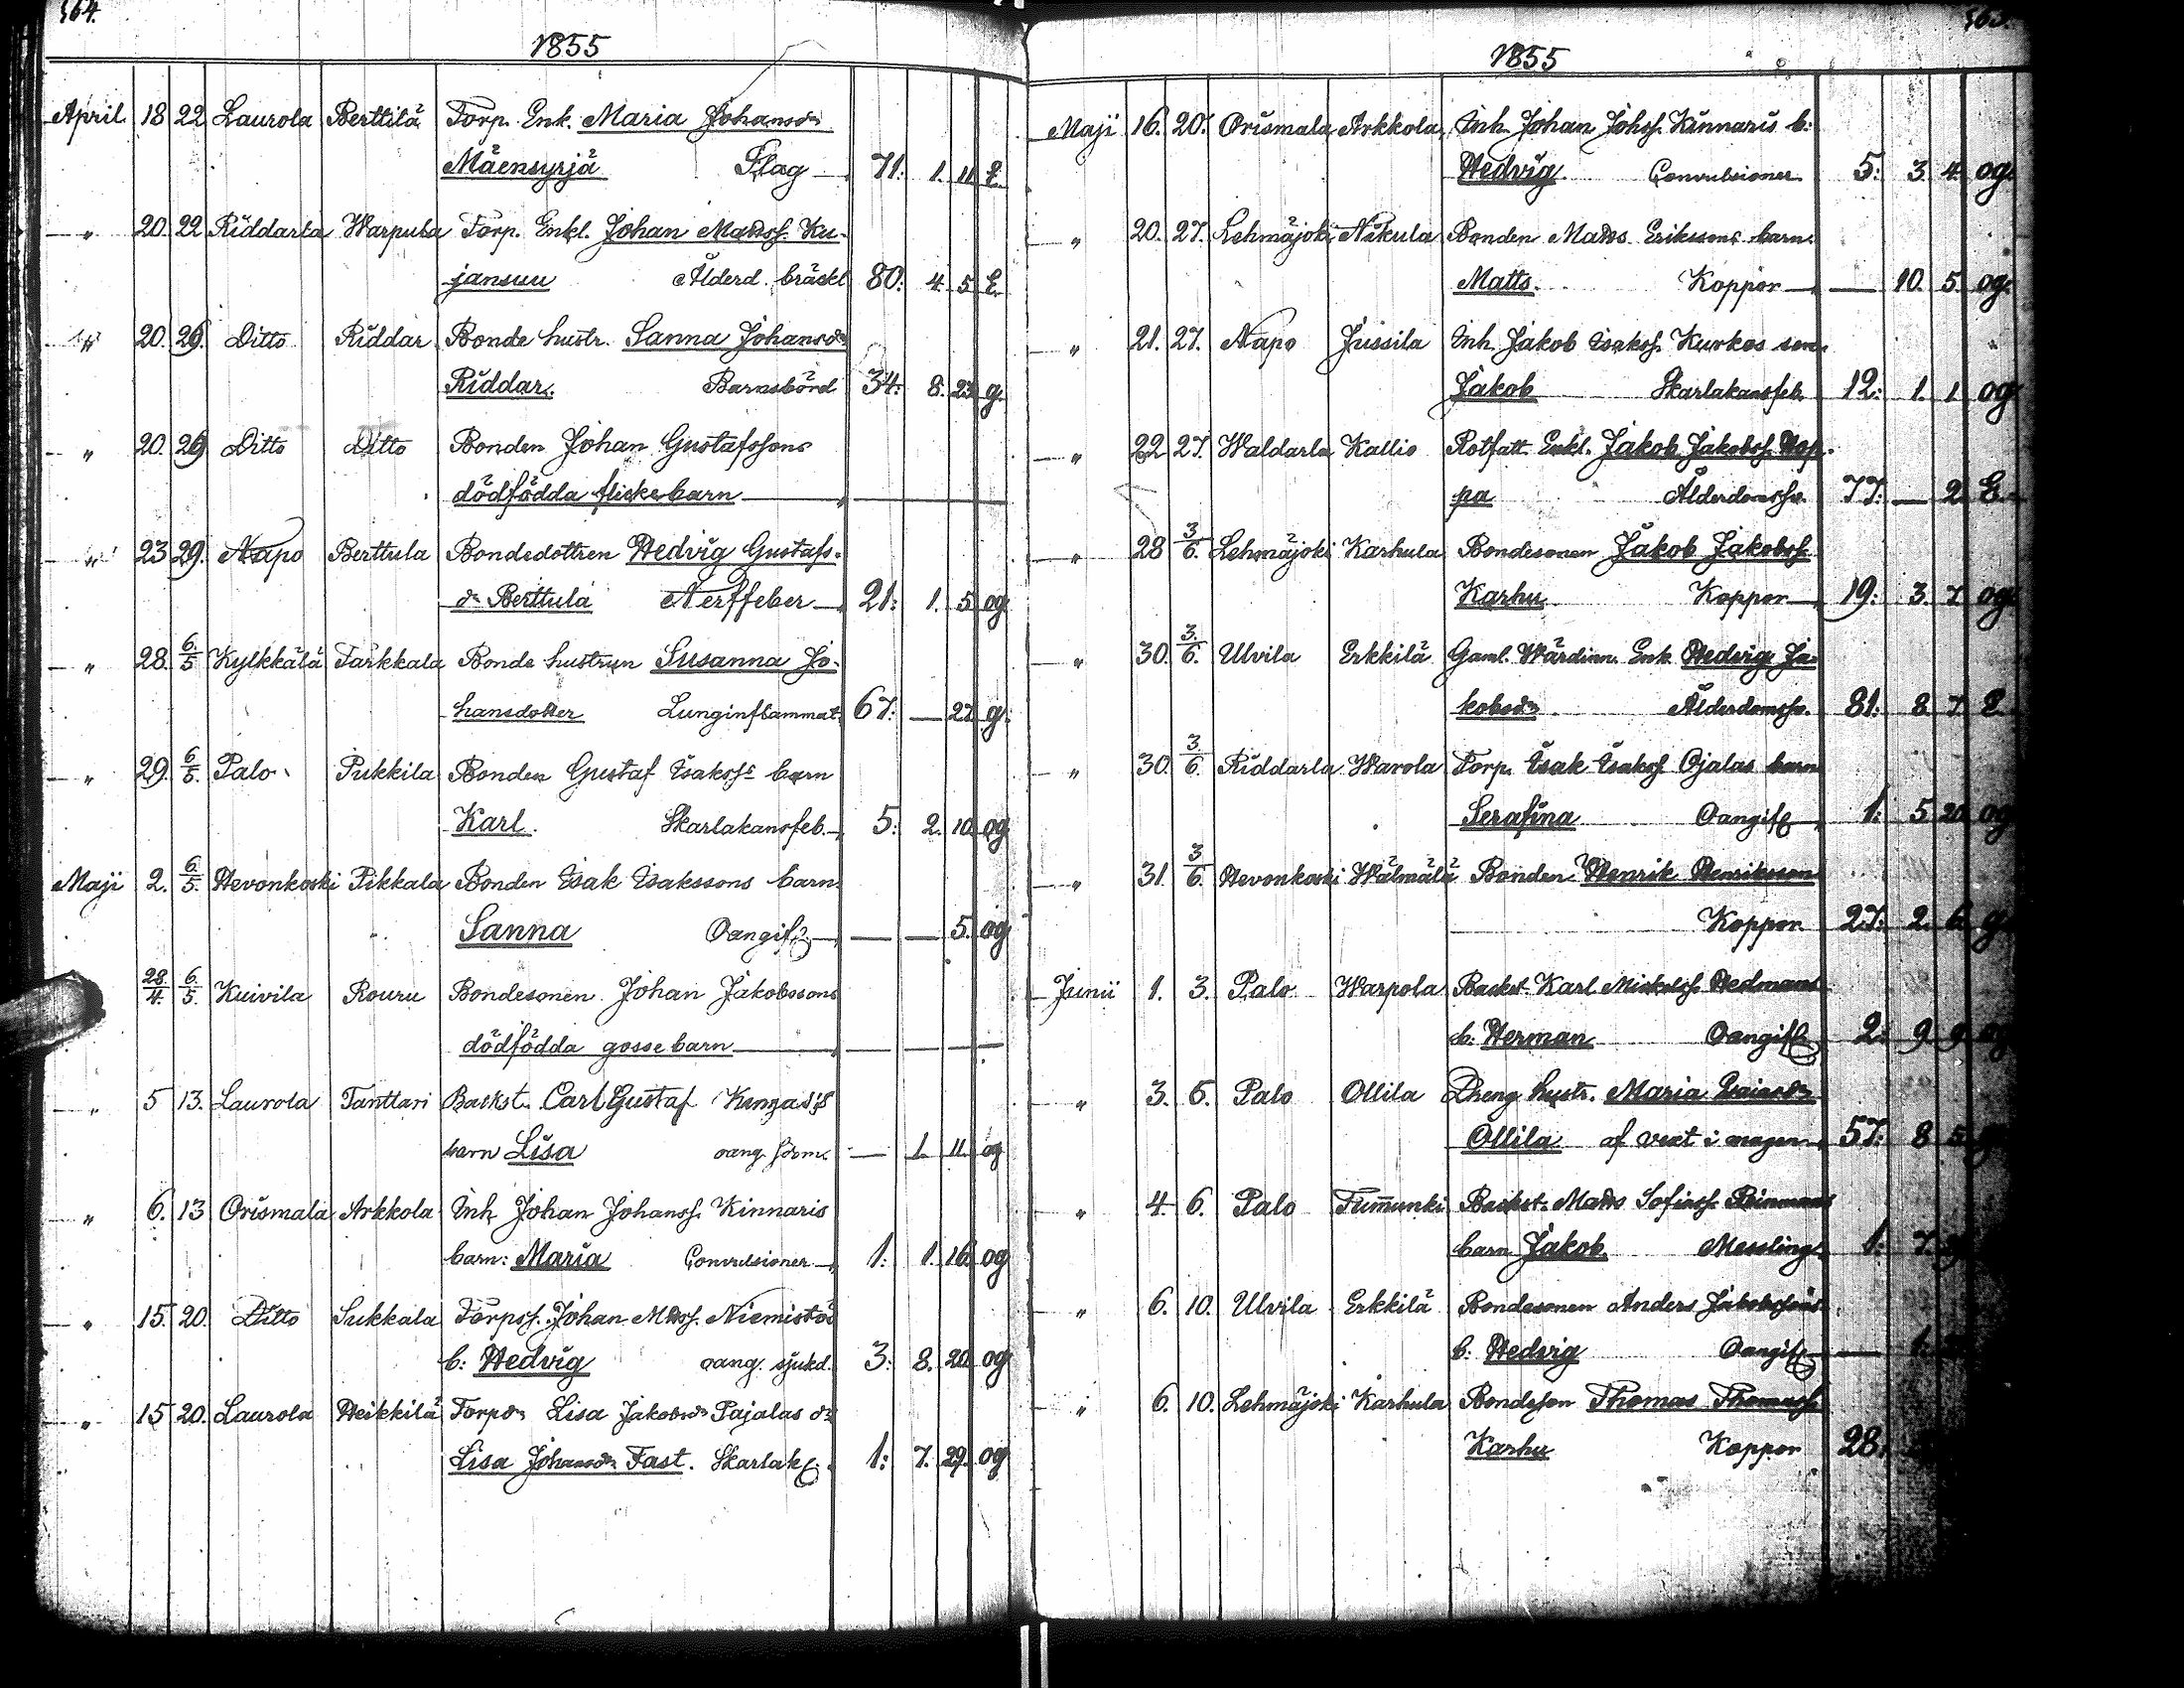 564.
1855
April 18 22 Laurola Berttilä Torp. Enk. Maria Johansdr
Mäensyrjä Slag 71: 1. 11. E.
" 20. 22 Riddarla Warpula Torp. Enkl. Johan Mattss. Ku-
jansuu Ålderd. bräckl 80: 4. 5. E.
" 20. 29. Ditto Riddar Bonde hustr. Sanna Johansdr
Riddar. Barnsbörd 34: 8. 23 g.
" 20. 29 Ditto Ditto Bonden Johan Gustafssons
dödfödda flickebarn
" 23 29. Napo Berttula Bondedottren Hedvig Gustafs-
dr Berttula Nerffeber 21: 1. 5 og.
" 28. 6/5 Kylkkälä Tarkkala Bonde hustrun Susanna Jo-
hansdotter Lunginflammat. 67: — 27 g.
" 29. 6/5. Palo Pukkila Bonden Gustaf Isakss barn
Karl. Skarlakansfeb. 5: 2. 10 og
Maji 2. 6/5. Hevonkoski Pikkala Bonden Isak Isakssons barn
Sanna Oangif. — — 5. og
28/4. 6/5. Kuivila Rouru Bondesonen Johan Jakobssons
dödfödda gossebarn
" 5 13. Laurola Tanttari Backst. Carl Gustaf
barn Lisa oang. — 1. 11. og
" 6. 13 Orismala Arkkola Inh Johan Johanss. Kinnaris
barn: Maria Convulsioner 1: 1. 16. og
" 15. 20. Ditto Sukkala Torpss. Johan Mattss. Niemistös
b: Hedvig oang. sjukd. 3: 8. 20. og
" 15 20. Laurola Heikkilä Torpdr Lisa Jakobsdr Pajalas dr
Lisa Johansdr Fast. Skarlakf. 1: 7. 29. og
565.
1855
Maji 16. 20. Orismala Arkkola Inh. Johan Johss. Kinnaris b:
Hedvig Convulsioner 5: 3. 4. og.
" 20. 27. Lehmäjoki Nikula Bonden Matts Erikssons barn
Matts. Koppor — 10. 5. og.
" 21. 27. Napo Jussila Inh. Jakob Isakss. Kurkos son
Jakob Skarlakansfeb. 12: 1. 1 og
" 22 27. Waldarla Kallio Rotfatt. Enkl. Jakob Jakobss. Hop-
pa Ålderdomssv. 77: — 2. E.
" 28 3/6. Lehmäjoki Karhula Bondesonen Jakob Jakobss.
Karhu Koppor 19: 3. 7 og
" 30. 3/6. Ulvila Erkkilä Gaml. Wärdinn. Enk. Hedvig Ja-
kobsdr Ålderdomssv. 81: 8. 7. E.
" 30. 3/6. Riddarla Warola Torp. Isak Isakss. Ojalas barn
Serafina Oangif. 1: 5 20 og
" 31. 3/6. Hevonkoski Wälmälä Bonden Henrik Henriksson
Koppor. 27: 2. 6. g.
Junii 1. 3. Palo Warpola Backst. Karl Mickelss. Hedmans
b. Herman Oangif. 2: 9 9. og
" 3. 6. Palo Ollila Dreng hustr. Maria Isaiasdr
Ollila af vext i magen 57: 8 5
" 4. 6. Palo Tum̄unki Backst. Matts Sofiass.
barn Jakob Messling 1: 7.
" 6. 10. Ulvila Erkkilä Bondesonen Anders Jakobssons
b: Hedvig Oangif. — 1.
" 6. 10. Lehmäjoki Karhula Bondeson Thomas Thomass.
Karhu Koppor 28.